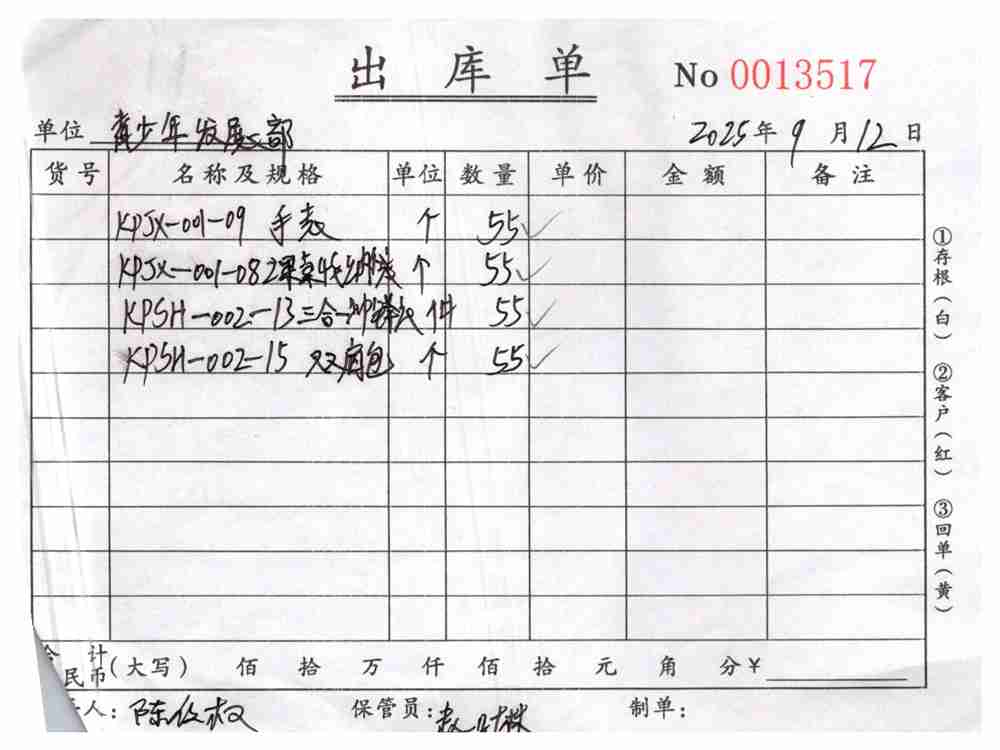 出库单 No 0013517
单位 青少年发展部 2025年9月12日
货号 名称及规格 单位 数量 单价 金额 备注
KPJX-001-09 手表 个 55
KPJX-001-082 个 55
KPSH-002-13三合一 件 55
KPSH-002-15 双肩包 个 55
计
民币(大写) 佰 拾 万 仟 佰 拾 元 角 分¥
人: 陈 权 保管员: 制单:
①存根(白) ②客户(红) ③回单(黄)